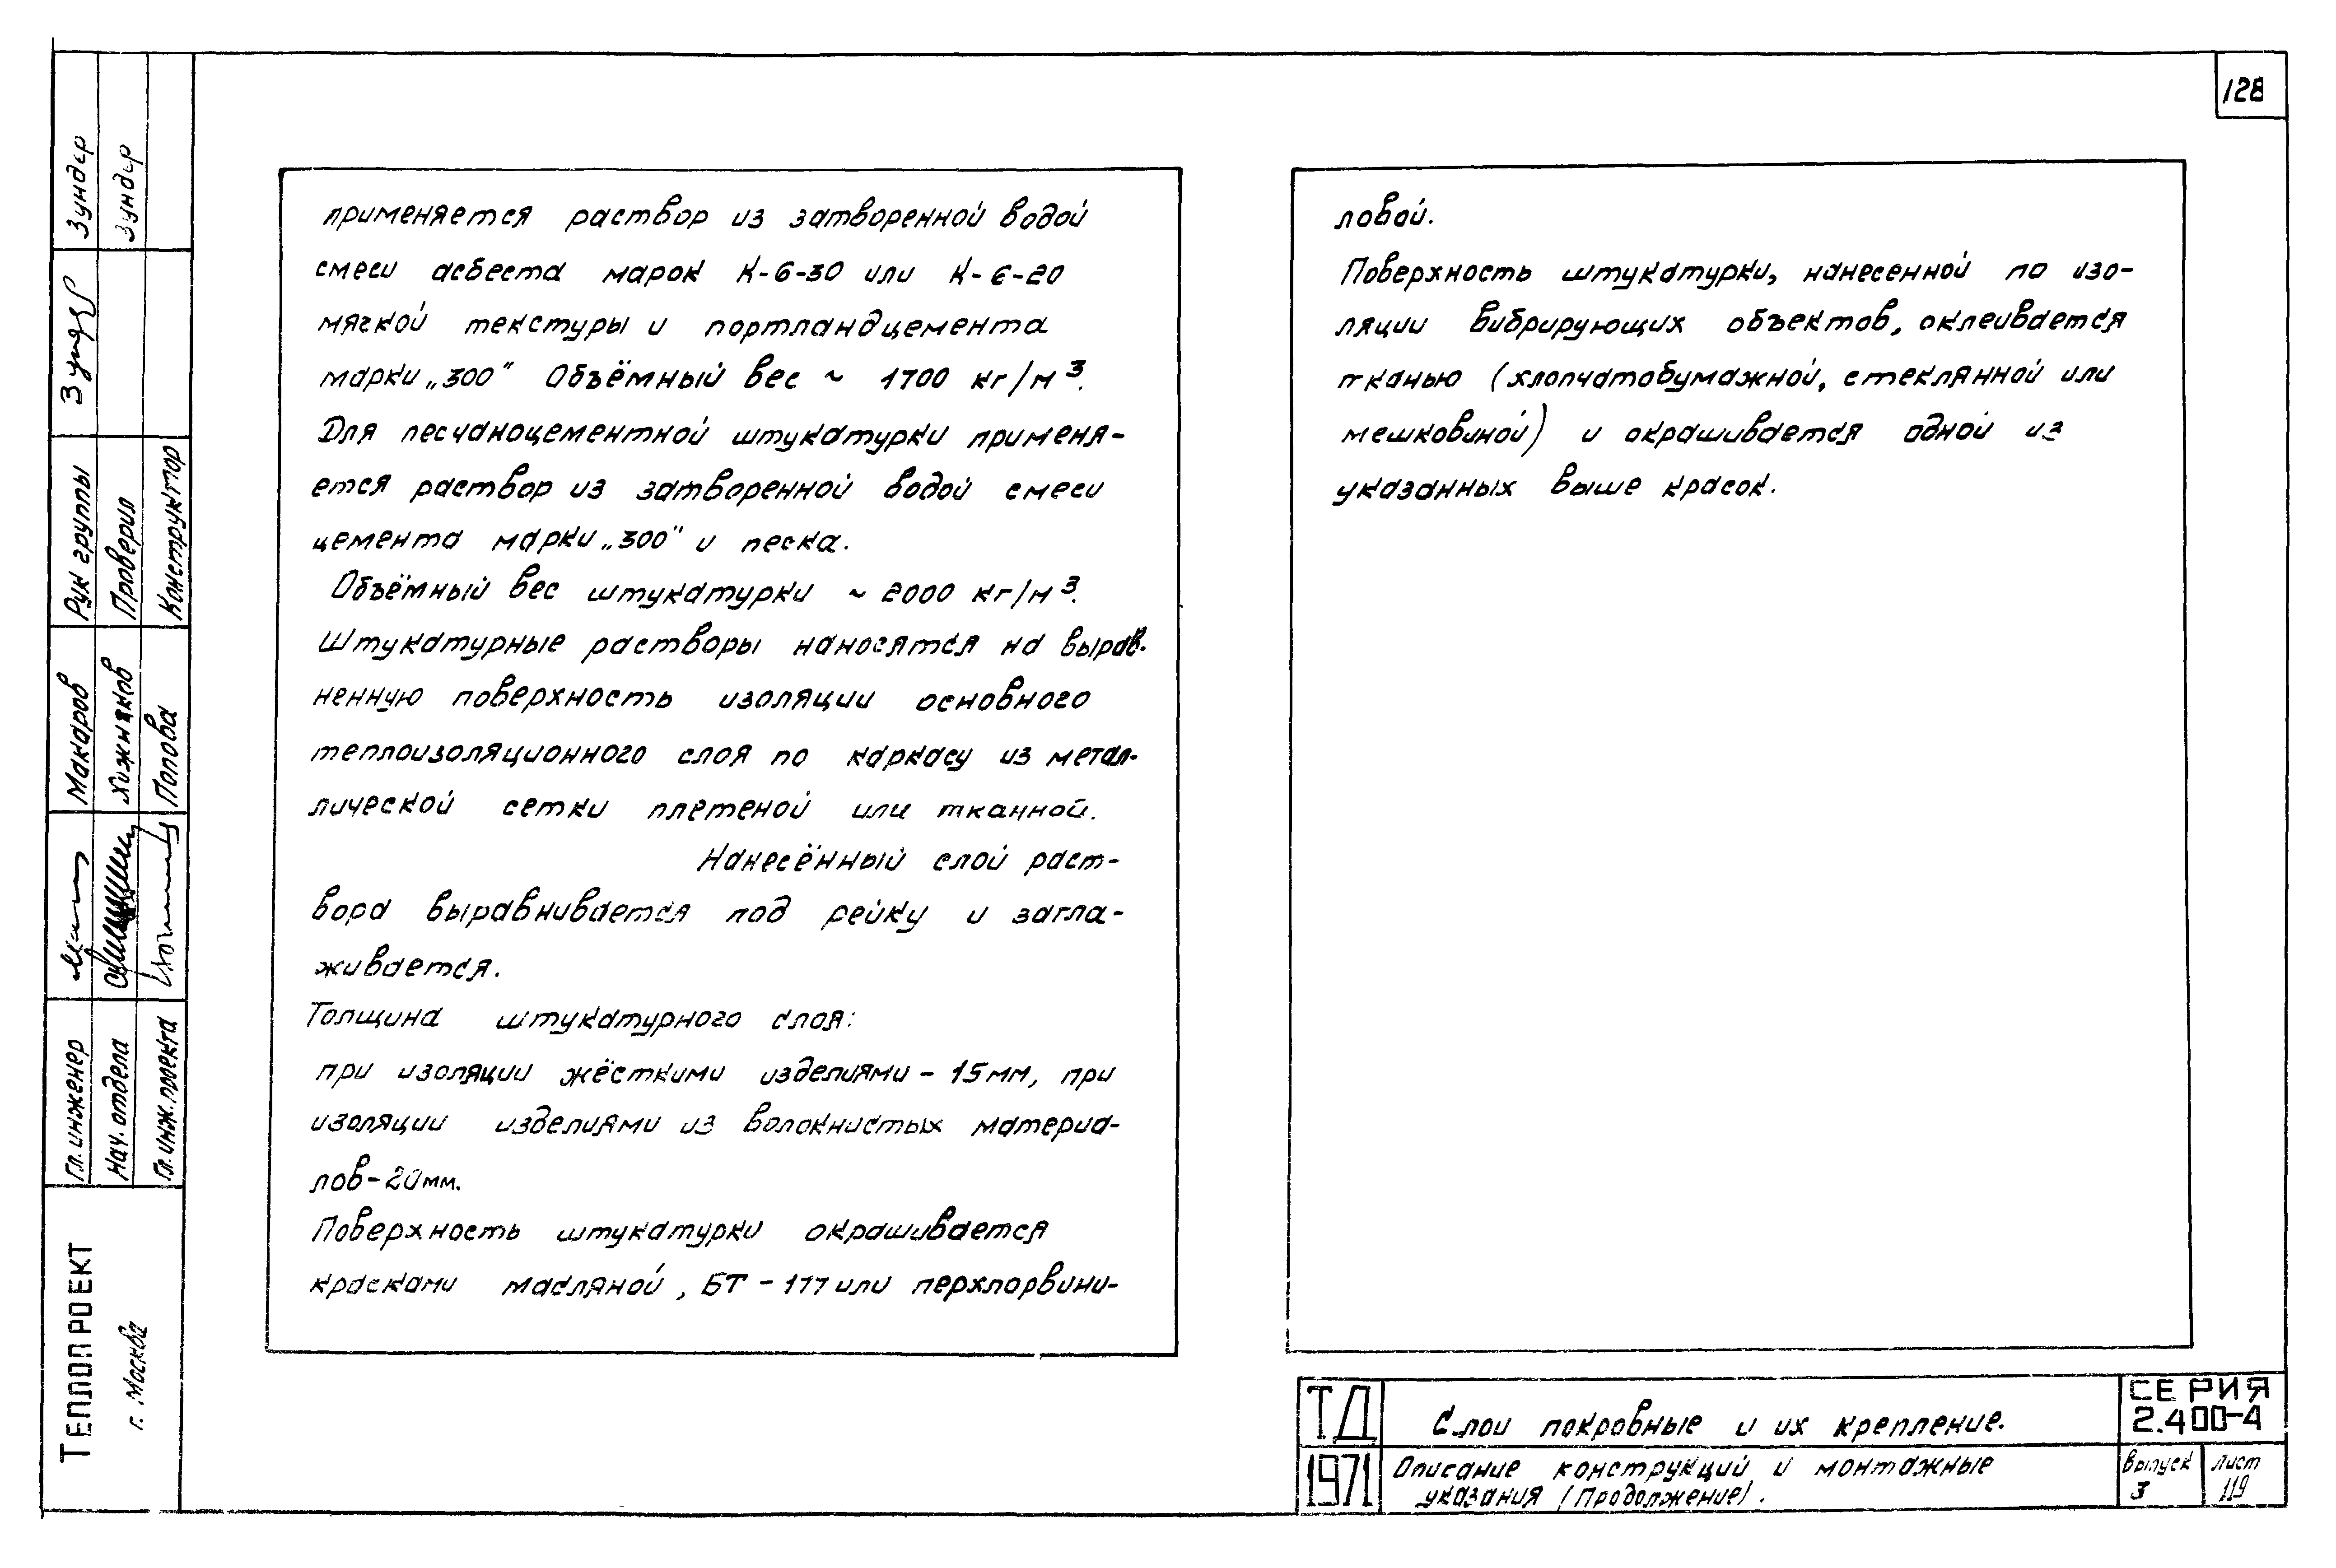 128
применяется раствор из затворенной водой
смеси асбеста марок К-6-30 или К-6-20
мягкой текстуры и портландцемента
марки „300" Объёмный вес ~ 1700 кг/м³.
Для песчаноцементной штукатурки применя-
ется раствор из затворенной водой смеси
цемента марки „300" и песка.
Объёмный вес штукатурки ~ 2000 кг/м³.
Штукатурные растворы наносятся на вырав-
ненную поверхность изоляции основного
теплоизоляционного слоя по каркасу из метал-
лической сетки плетеной или тканной.
Нанесённый слой раст-
вора выравнивается под рейку и загла-
живается.
Толщина штукатурного слоя:
при изоляции жёсткими изделиями - 15мм, при
изоляции изделиями из волокнистых материа-
лов - 20мм.
Поверхность штукатурки окрашивается
красками масляной, БТ - 177 или перхлорвини-
ловой.
Поверхность штукатурки, нанесенной по изо-
ляции вибрирующих объектов, оклеивается
тканью (хлопчатобумажной, стеклянной или
мешковиной) и окрашивается одной из
указанных выше красок.
ТД
1971
Слои покровные и их крепление.
Описание конструкций и монтажные
указания (Продолжение).
СЕРИЯ
2.400-4
выпуск
3
лист
119
ТЕПЛОПРОЕКТ
г. Москва
Гл. инженер Макаров Рук группы Зундер
Нач. отдела Хижняков Проверил Зундер
Гл. инж. проекта Попова Конструктор